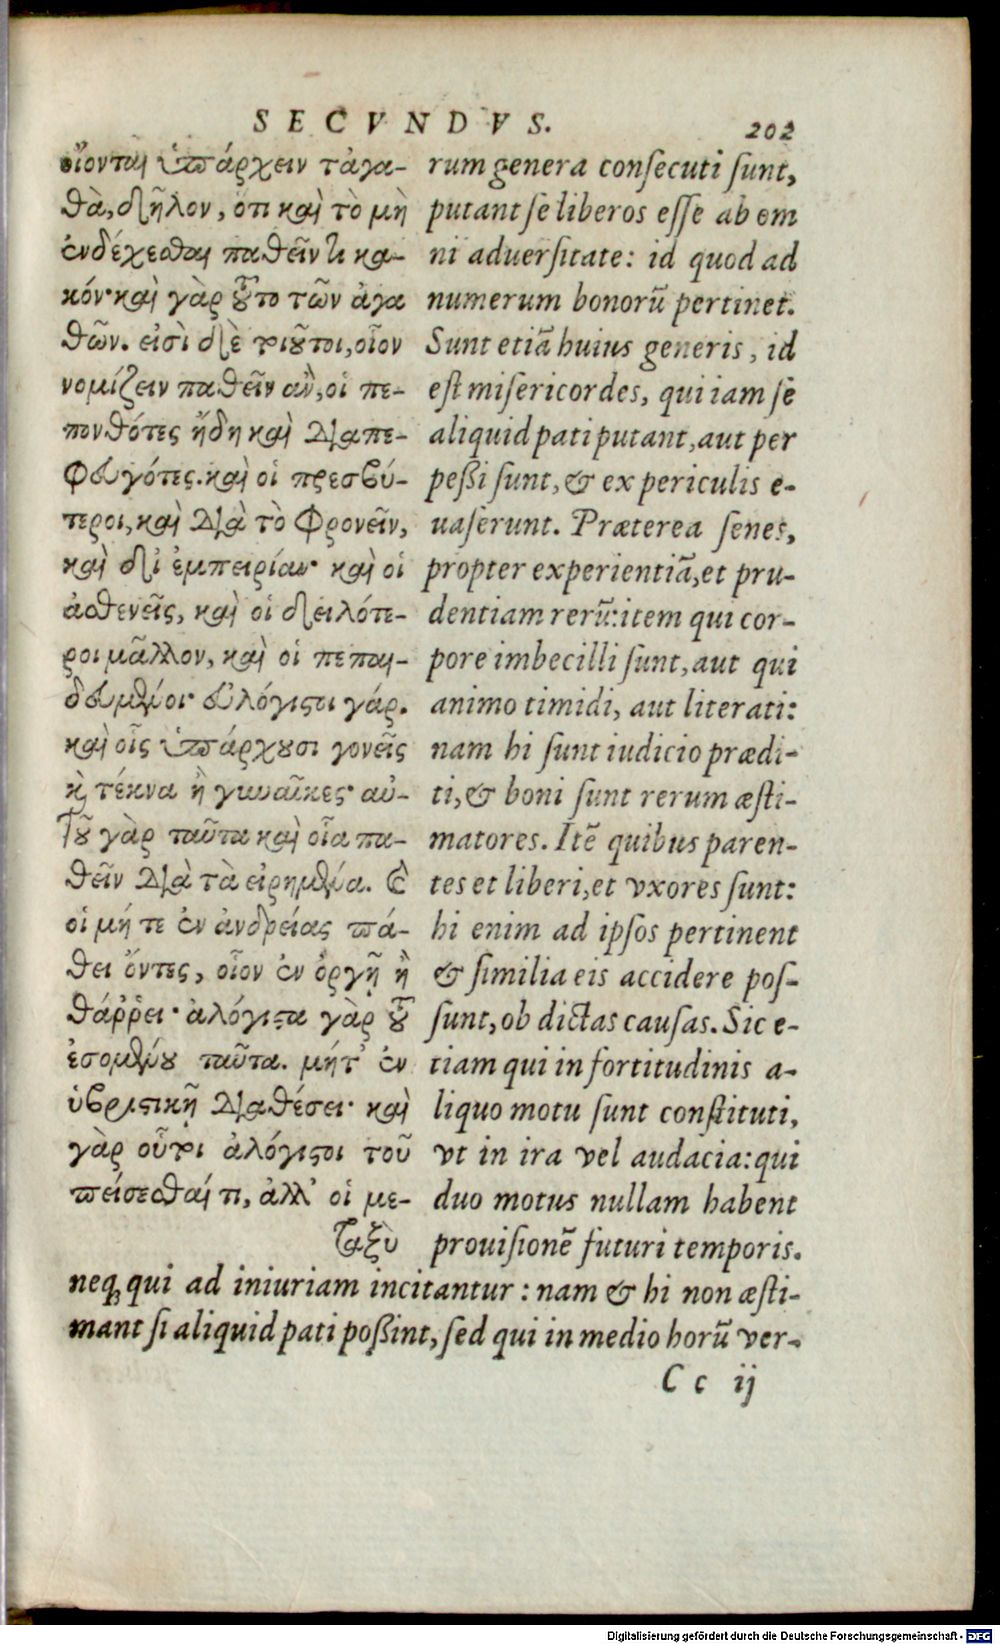 SECVNDVS.
202
οἴονται ὑπάρχειν τἀγα-
θὰ, δῆλον, ὅτι καὶ τὸ μὴ
ἐνδέχεσθαι παθεῖν τι κα-
κόν· καὶ γὰρ τοῦτο τῶν ἀγα
θῶν. εἰσὶ δὲ τοιοῦτοι, οἷον
νομίζειν παθεῖν ἂν, οἱ πε-
πονθότες ἤδη καὶ διαπε-
φευγότες. καὶ οἱ πρεσβύ-
τεροι, καὶ διὰ τὸ φρονεῖν,
καὶ δι' ἐμπειρίαν· καὶ οἱ
ἀσθενεῖς, καὶ οἱ δειλότε-
ροι μᾶλλον, καὶ οἱ πεπαι-
δευμένοι· εὐλόγιστοι γάρ.
καὶ οἷς ὑπάρχουσι γονεῖς
καὶ τέκνα ἢ γυναῖκες· αὐ-
τοῦ γὰρ ταῦτα καὶ οἷα πα-
θεῖν διὰ τὰ εἰρημένα. καὶ
οἱ μή τε ἐν ἀνδρείας πά-
θει ὄντες, οἷον ἐν ὀργῇ ἢ
θάῤῥει· ἀλόγιστα γὰρ τοῦ
ἐσομένου ταῦτα. μήτ' ἐν
ὑβριστικῇ διαθέσει· καὶ
γὰρ οὗτοι ἀλόγιστοι τοῦ
πείσεσθαί τι, ἀλλ' οἱ με-
ταξὺ
rum genera consecuti sunt,
putant se liberos esse ab om
ni aduersitate: id quod ad
numerum bonorū pertinet.
Sunt etiā huius generis, id
est misericordes, qui iam se
aliquid pati putant, aut per
peßi sunt, & ex periculis e-
uaserunt. Præterea senes,
propter experientiā, et pru-
dentiam rerū: item qui cor-
pore imbecilli sunt, aut qui
animo timidi, aut literati:
nam hi sunt iudicio prædi-
ti, & boni sunt rerum æsti-
matores. Itē quibus paren-
tes et liberi, et vxores sunt:
hi enim ad ipsos pertinent
& similia eis accidere pos-
sunt, ob dictas causas. Sic e-
tiam qui in fortitudinis a-
liquo motu sunt constituti,
vt in ira vel audacia: qui
duo motus nullam habent
prouisionē futuri temporis.
neq; qui ad iniuriam incitantur: nam & hi non æsti-
mant si aliquid pati poßint, sed qui in medio horū ver-
Cc ij
Digitalisierung gefördert durch die Deutsche Forschungsgemeinschaft - DFG